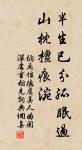 半生已分孤眠過
山枕檀痕涴
納蘭性德虞美人曲闌
深處重相見詞典網書